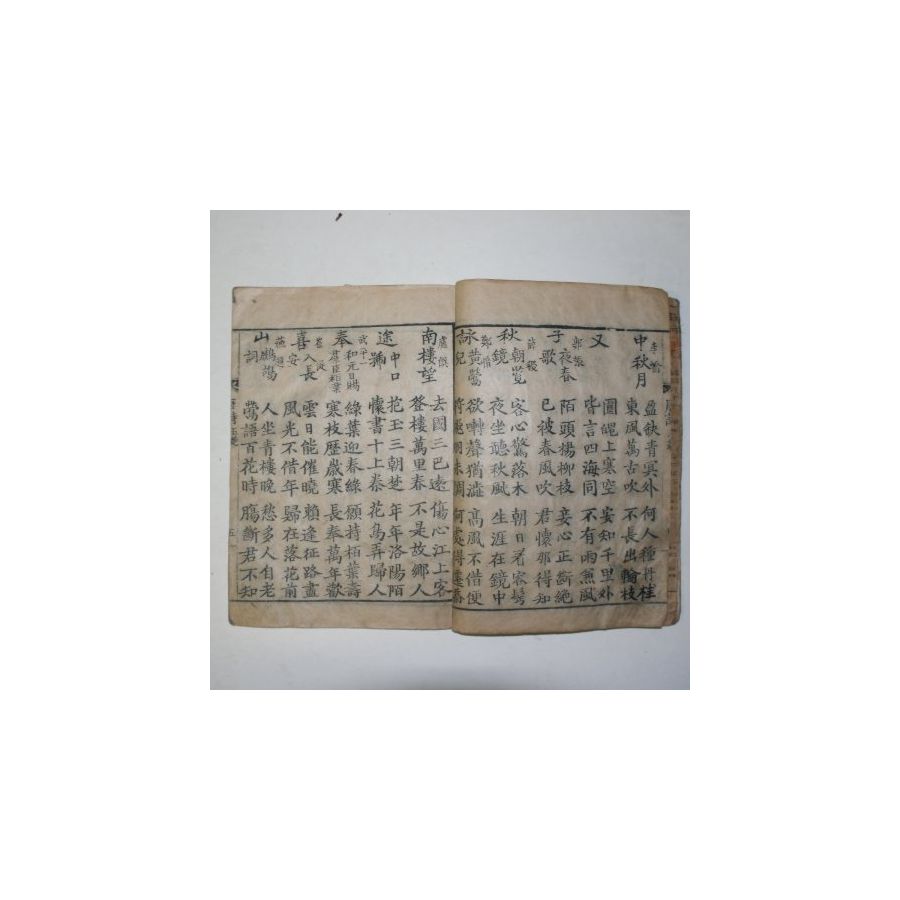 中秋月 李嶠
盈缺青冥外 何人種丹桂
東風萬古吹 不長出輪枝
又
圓魄上寒空 安知千里外
皆言四海同 不有雨兼風
子夜春歌 郭振
陌頭楊柳枝 妾心正斷絶
已被春風吹 君懷那得知
秋朝覽鏡 薛稷
客心驚落木 朝日看容鬂
夜坐聽秋風 生涯在鏡中
詠黄鶯兒 鄭愔
欲囀聲猶澁 高風不借便
將 未調 何處得
南樓望 盧僎
去國三巴遠 傷心江上客
登樓萬里春 不是故鄉人
途中口號
抱玉三朝楚 年年洛陽陌
懷書十上秦 花鳥弄歸人
奉和元日賜羣臣栢葉 武平一
綠葉迎春綠 願持栢葉壽
寒枝歷歲寒 長奉萬年歡
喜入長安 崔湜
雲日能催曉 賴逢征路盡
風光不借年 歸在落花前
山鷓鴣詞 蘇頲
人坐青樓晚 愁多人自老
鶯語百花時 膓斷君不知
五